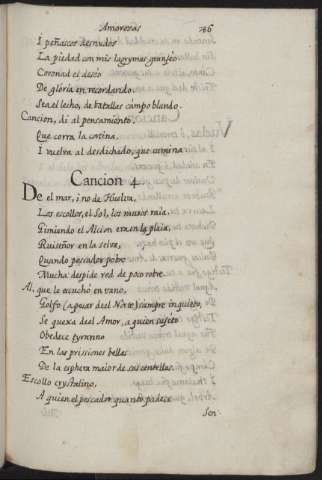 Amorosas 186
I peñascos desnudos
La piedad con mis lagrymas granjeo
Coronad el deseo
De gloria en recordando.
Sea el lecho, de batallas campo blando.
Cancion, di al pensamiento
Que corra la cortina,
I vuelva al desdichado, que camina
Cancion 4.
De el mar, i no de Huelva,
Los escollos, el Sol, los muros raia,
Gimiendo el Alcion era en la plaia,
Ruiseñor en la selva,
Quando pescador pobre
Mucha despide red de poco robre.
Al, que le escuchò en vano,
Golfo (a pesar de el Norte) siempre inquieto,
Se quexa de el Amor, a quien sujeto
Obedece tyranno
En las prisiones bellas
De la esphera maior de sus centellas.
Escollo crystalino,
A quien el pescador quanto padece
Sen